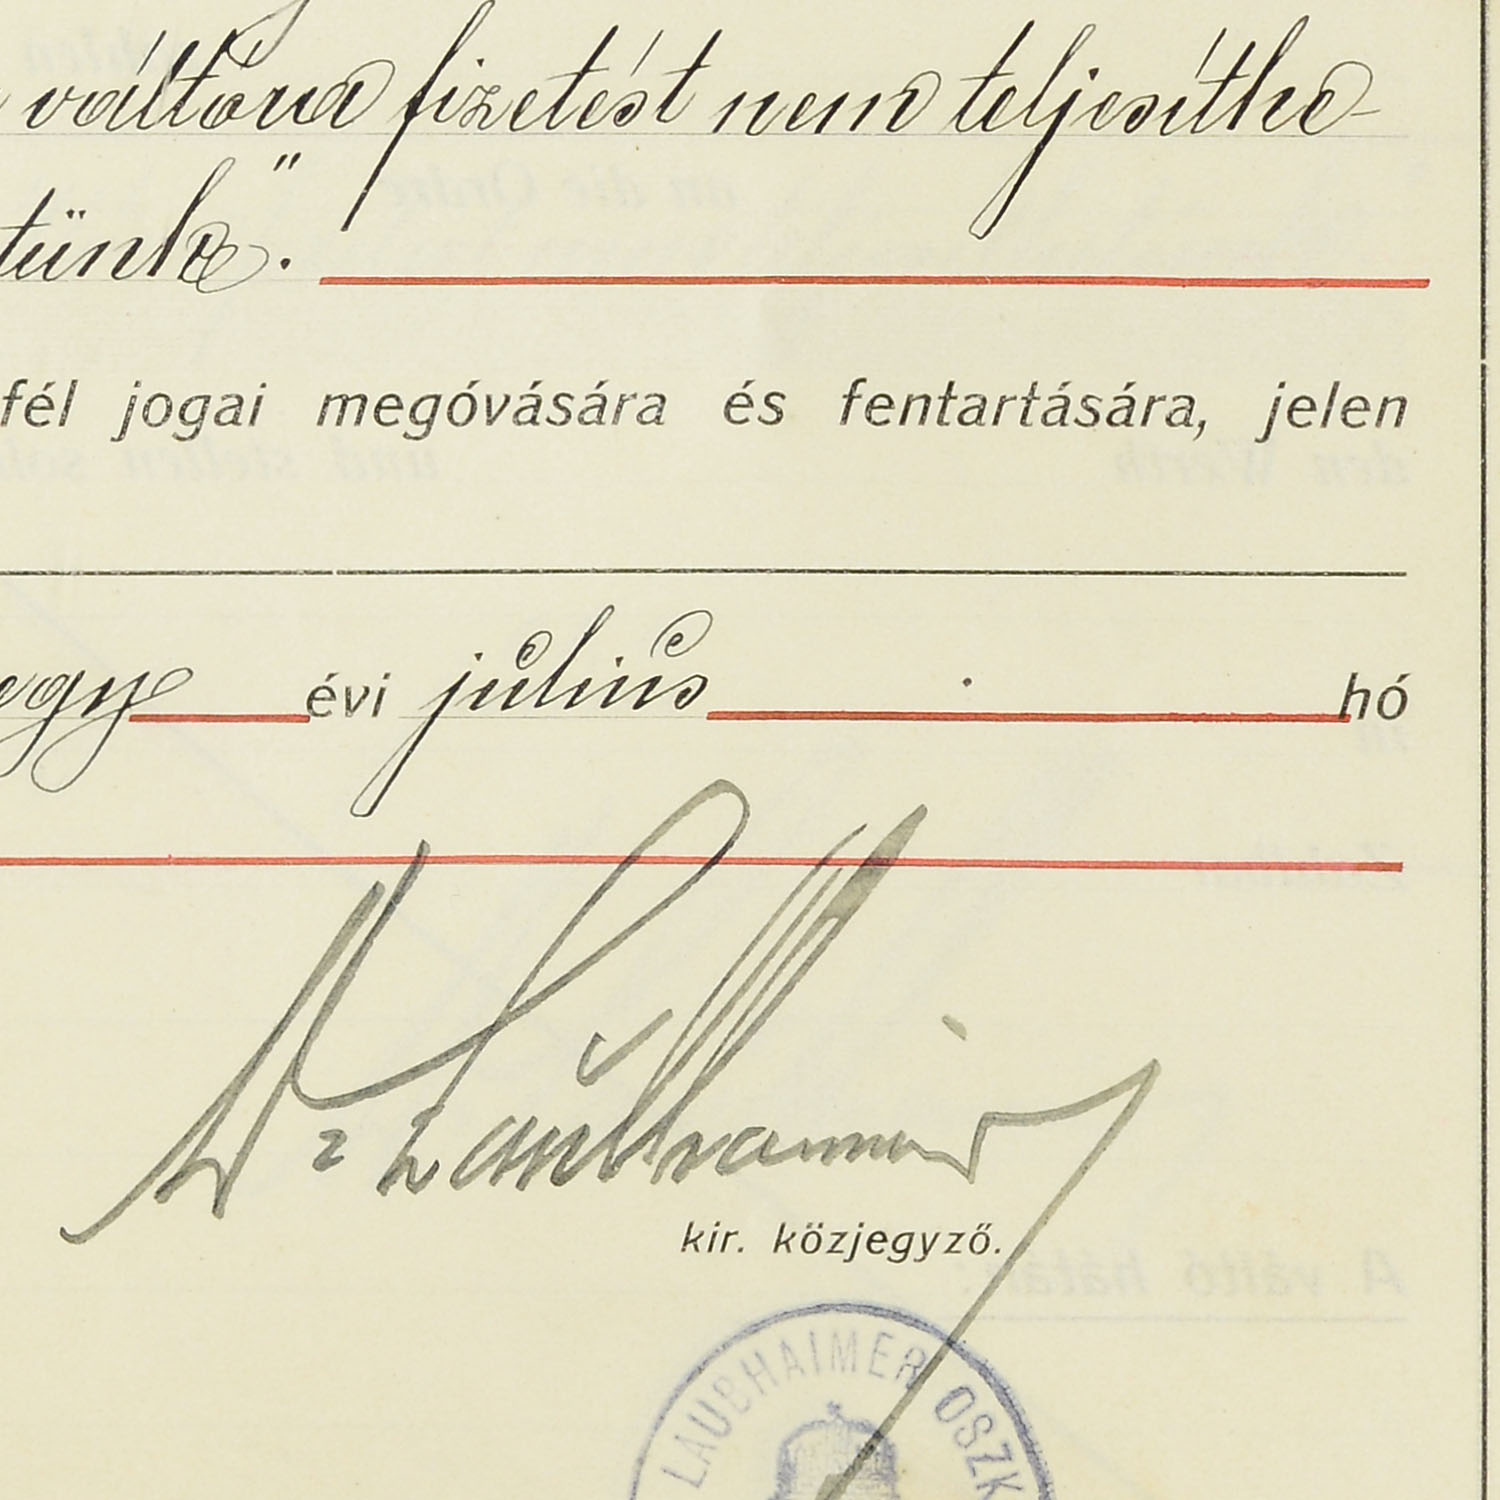 váltóra fizetést nem teljesíthe-
tünk."
fél jogai megóvására és fentartására, jelen
egy évi július hó
Dr Laubhaimer
kir. közjegyző.
LAUBHAIMER OSZK